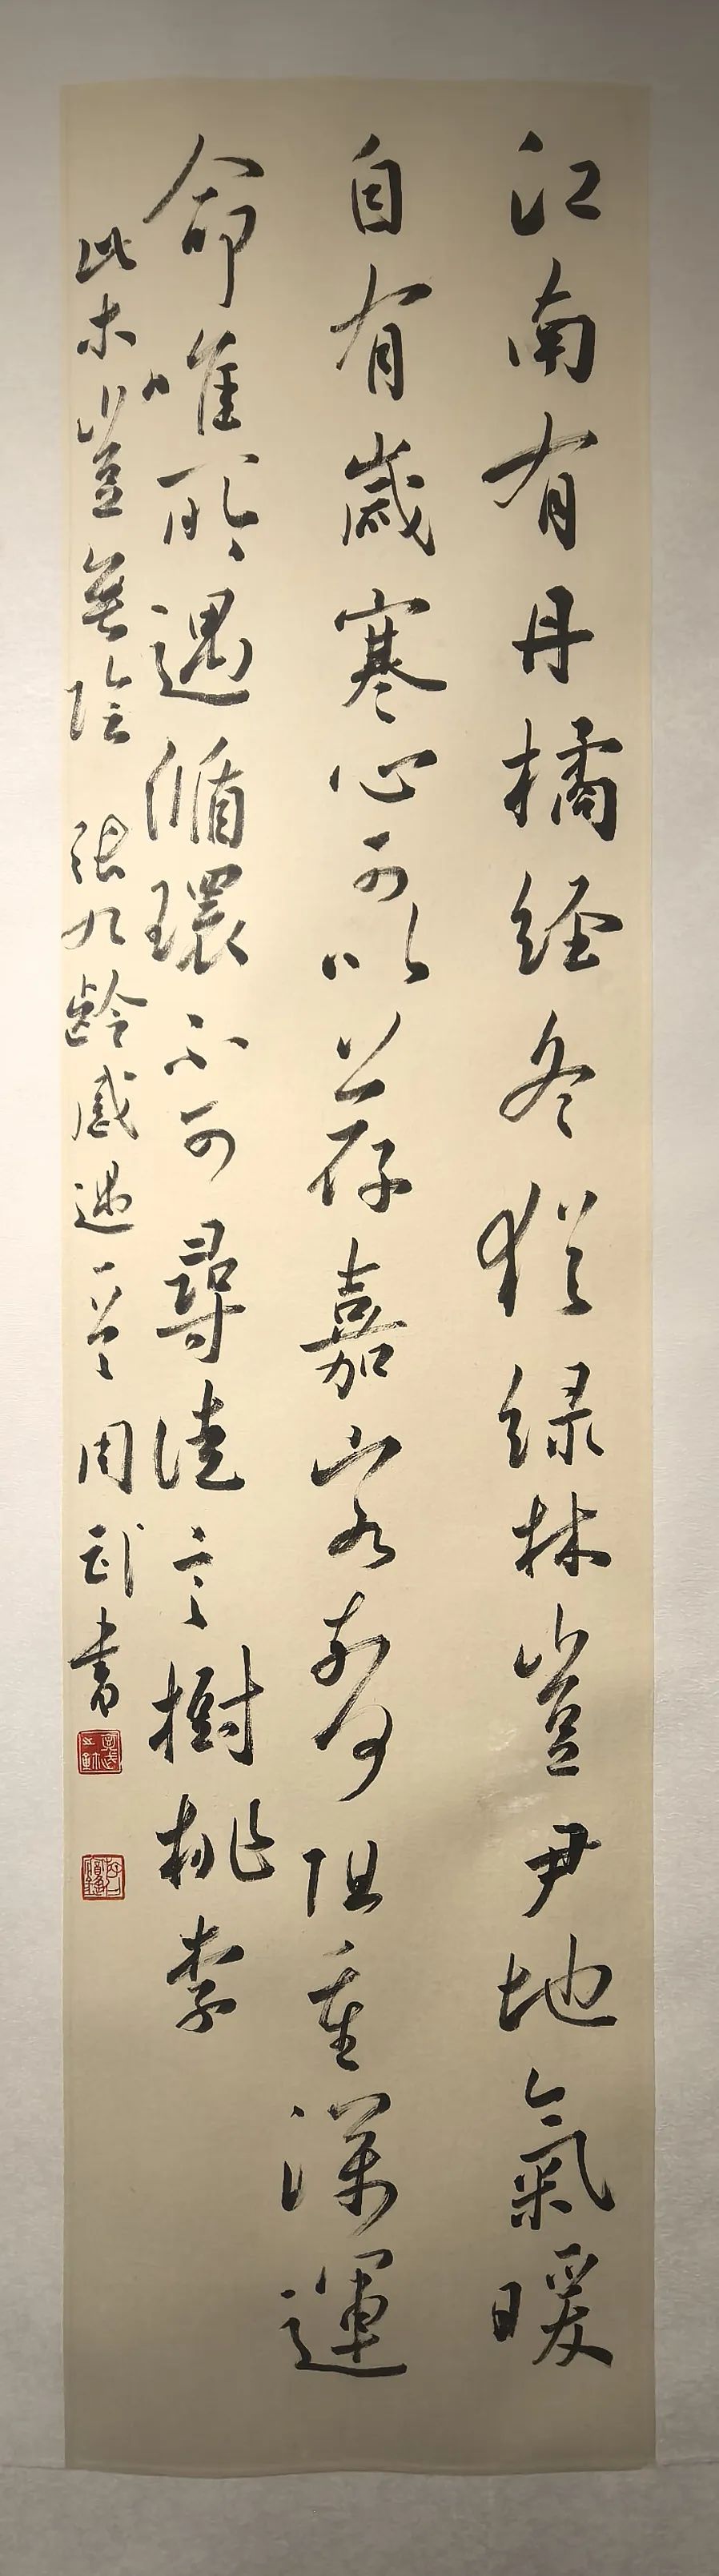 江南有丹橘经冬猶绿林豈尹地氣暖
自有歲寒心可以荐嘉客奈何阻重深運
命唯所遇循環不可尋徒言樹桃李
此木豈無陰 張九齡感遇一首 周武書